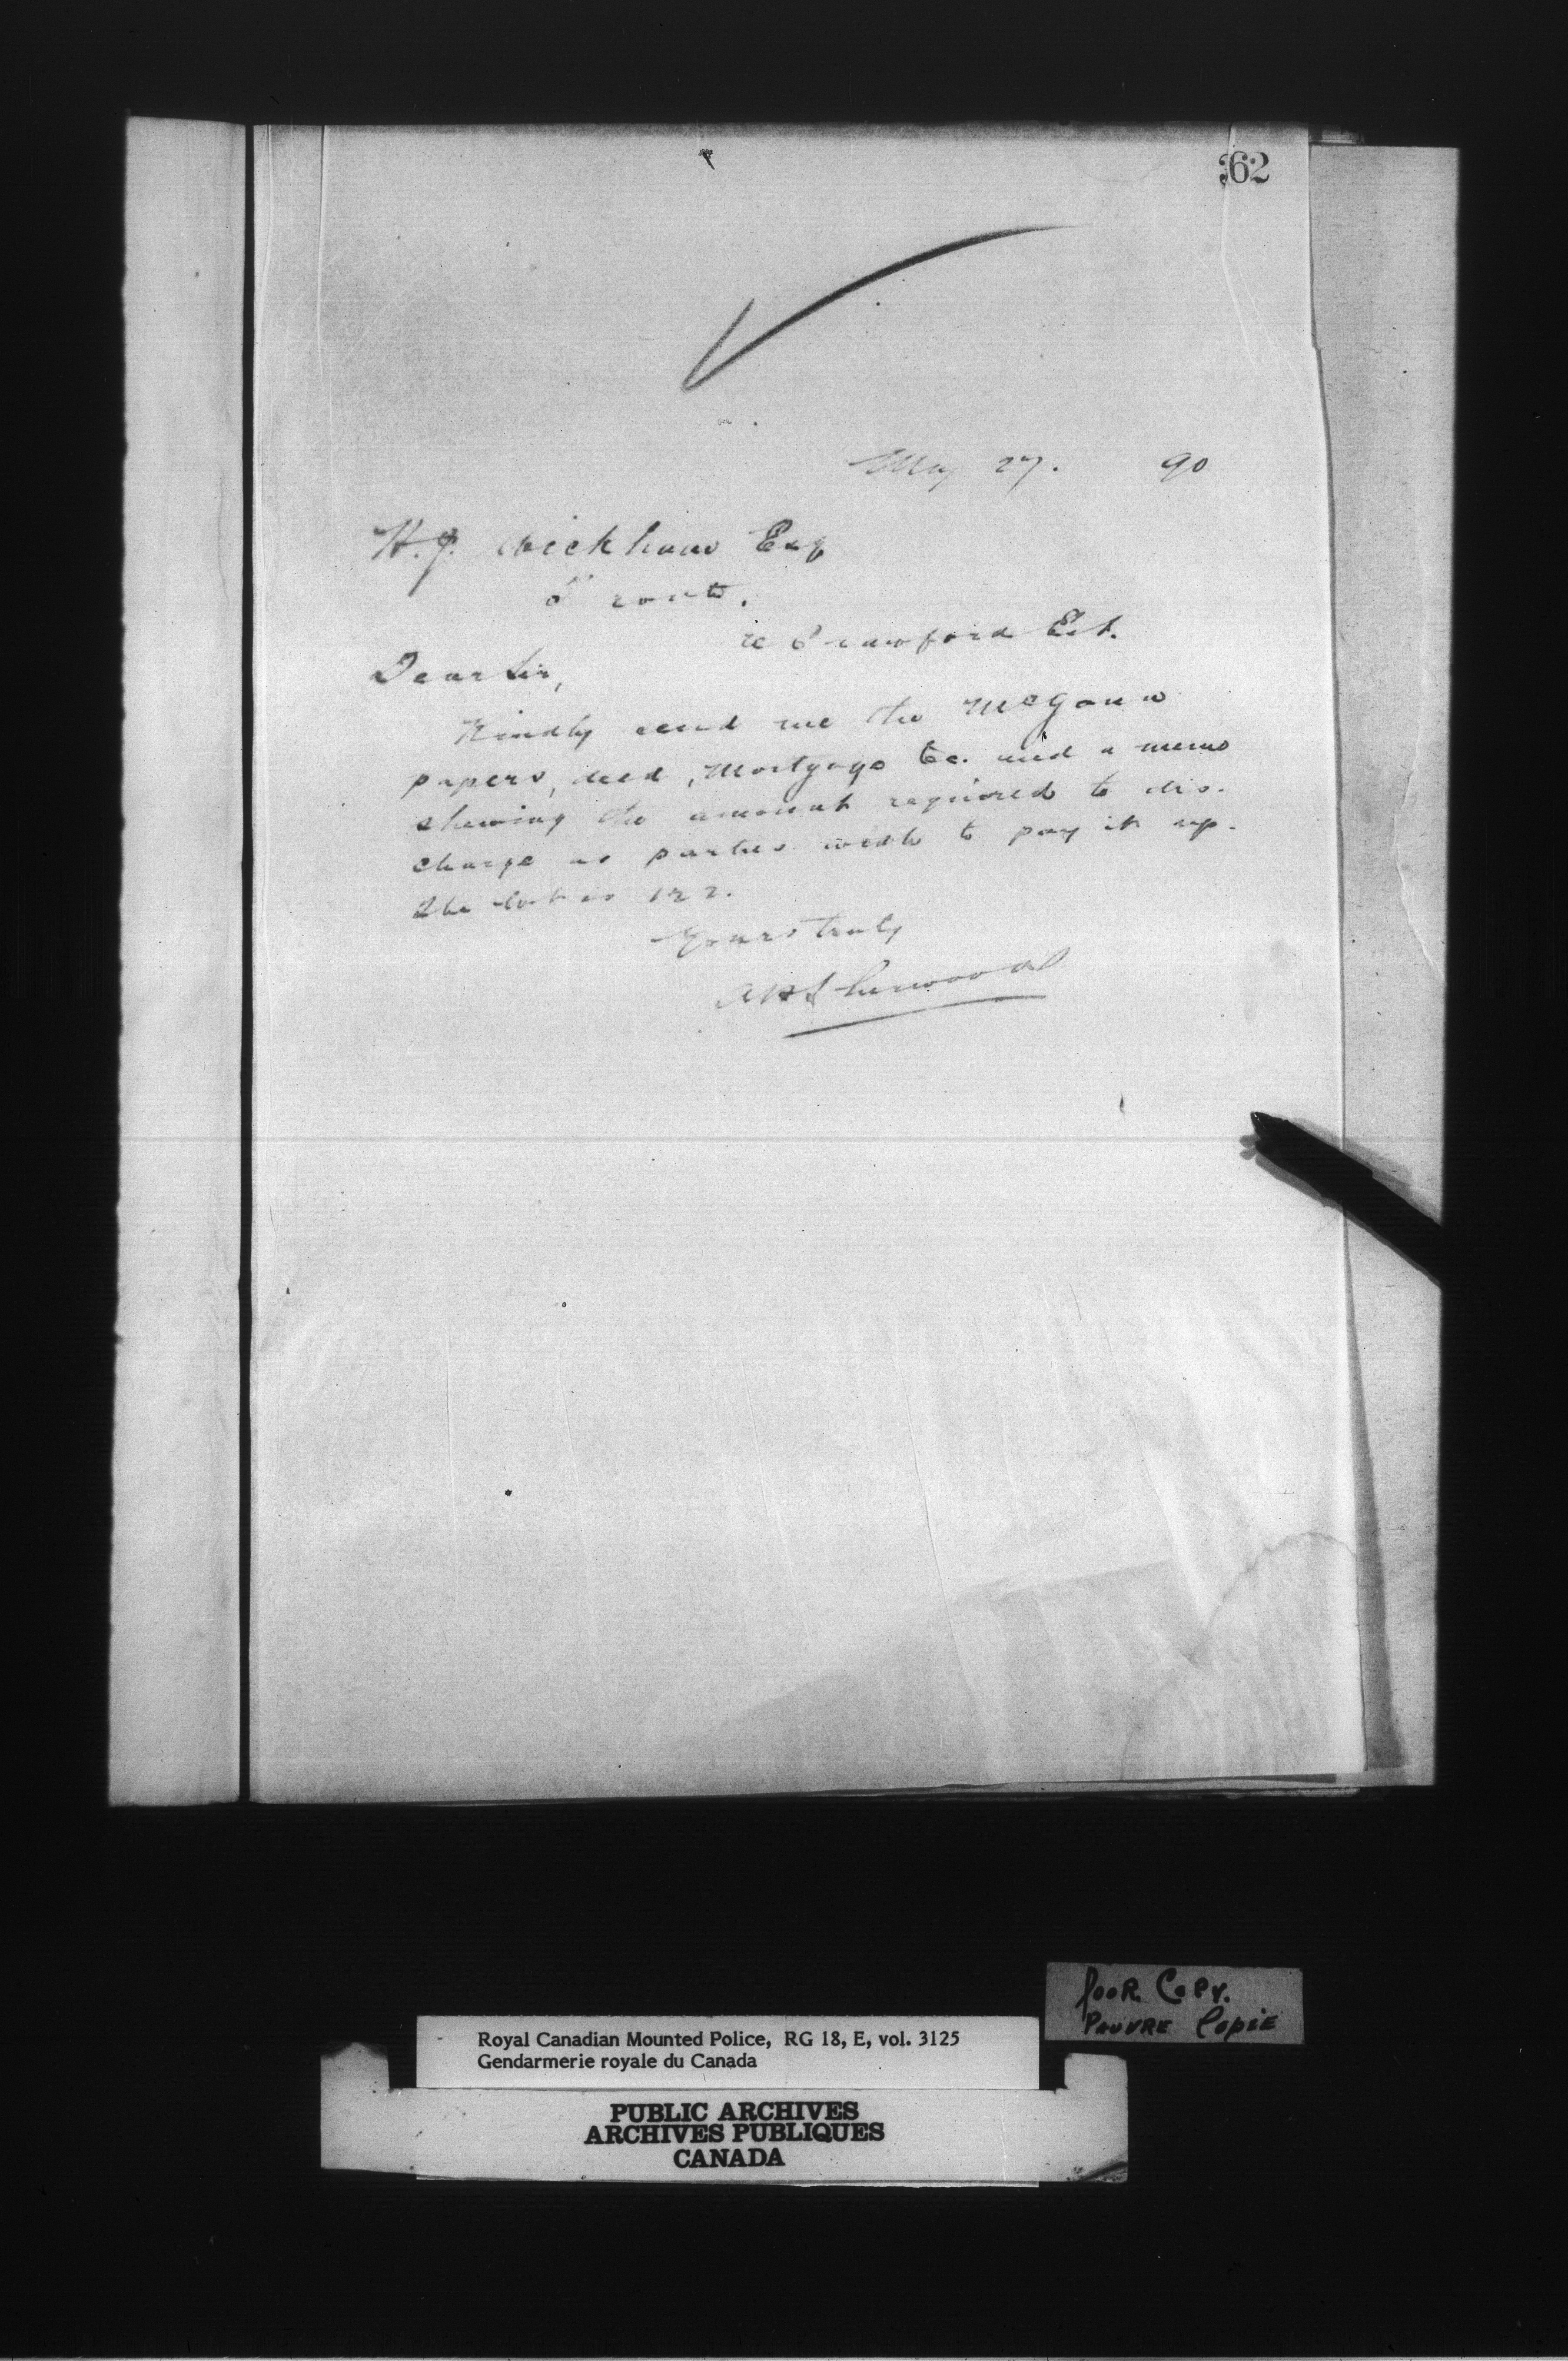 362
May 27. 90
H.J. Wickham Esq
Toronto.
re Crawford Est.
Dear Sir,
Kindly send me the McGann
papers, deed, Mortgage &c. and a memo
shewing the amount required to dis-
charge as parties wish to pay it up.
The lot is 122.
Yours truly
APSherwood
Poor Copy.
Pauvre Copie
Royal Canadian Mounted Police, RG 18, E, vol. 3125
Gendarmerie royale du Canada
PUBLIC ARCHIVES
ARCHIVES PUBLIQUES
CANADA